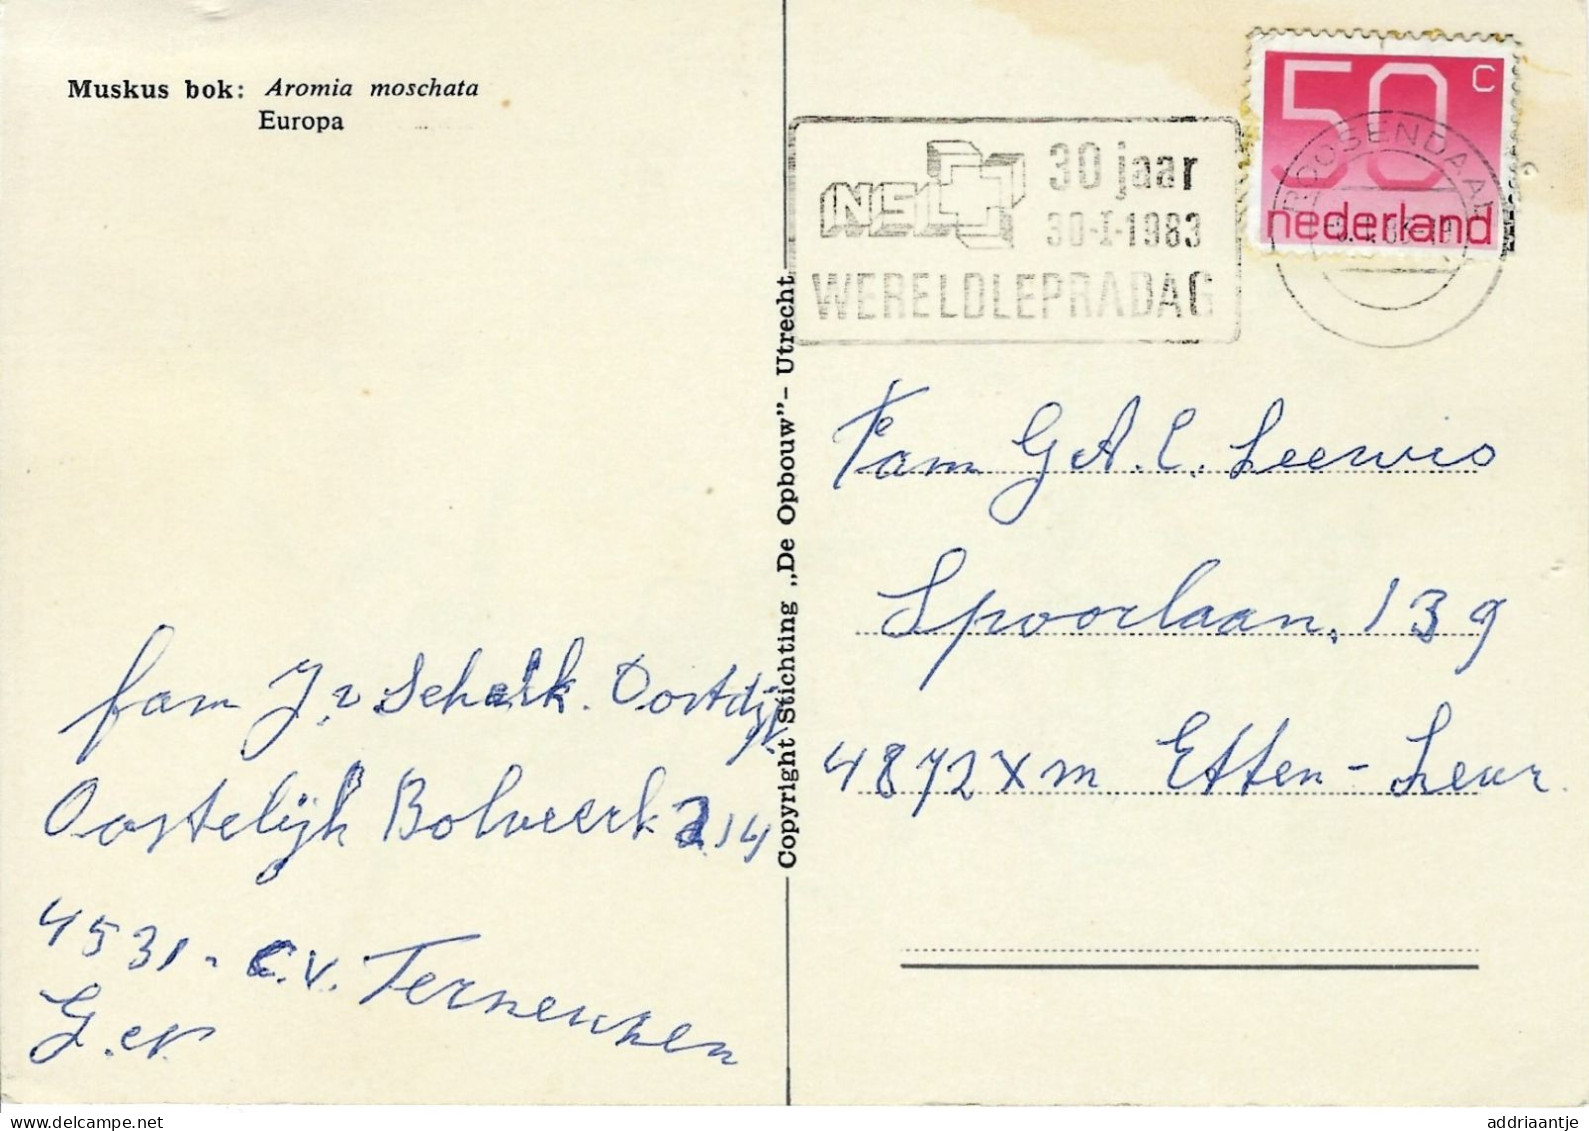 Muskus bok: Aromia moschata
Europa
50 c
nederland
ROOSENDAAL
NSL
30 jaar
30-I-1983
WERELDLEPRADAG
Copyright Stichting „De Opbouw”- Utrecht
Fam G A. C. Leewis
Spoorlaan, 139
4872 xm Etten-Leur
fam J. v Schalk. Oostdijk
Oostelijk Bolwerk 214
4531 - C.V. Terneuzen
G. en
addriaantje